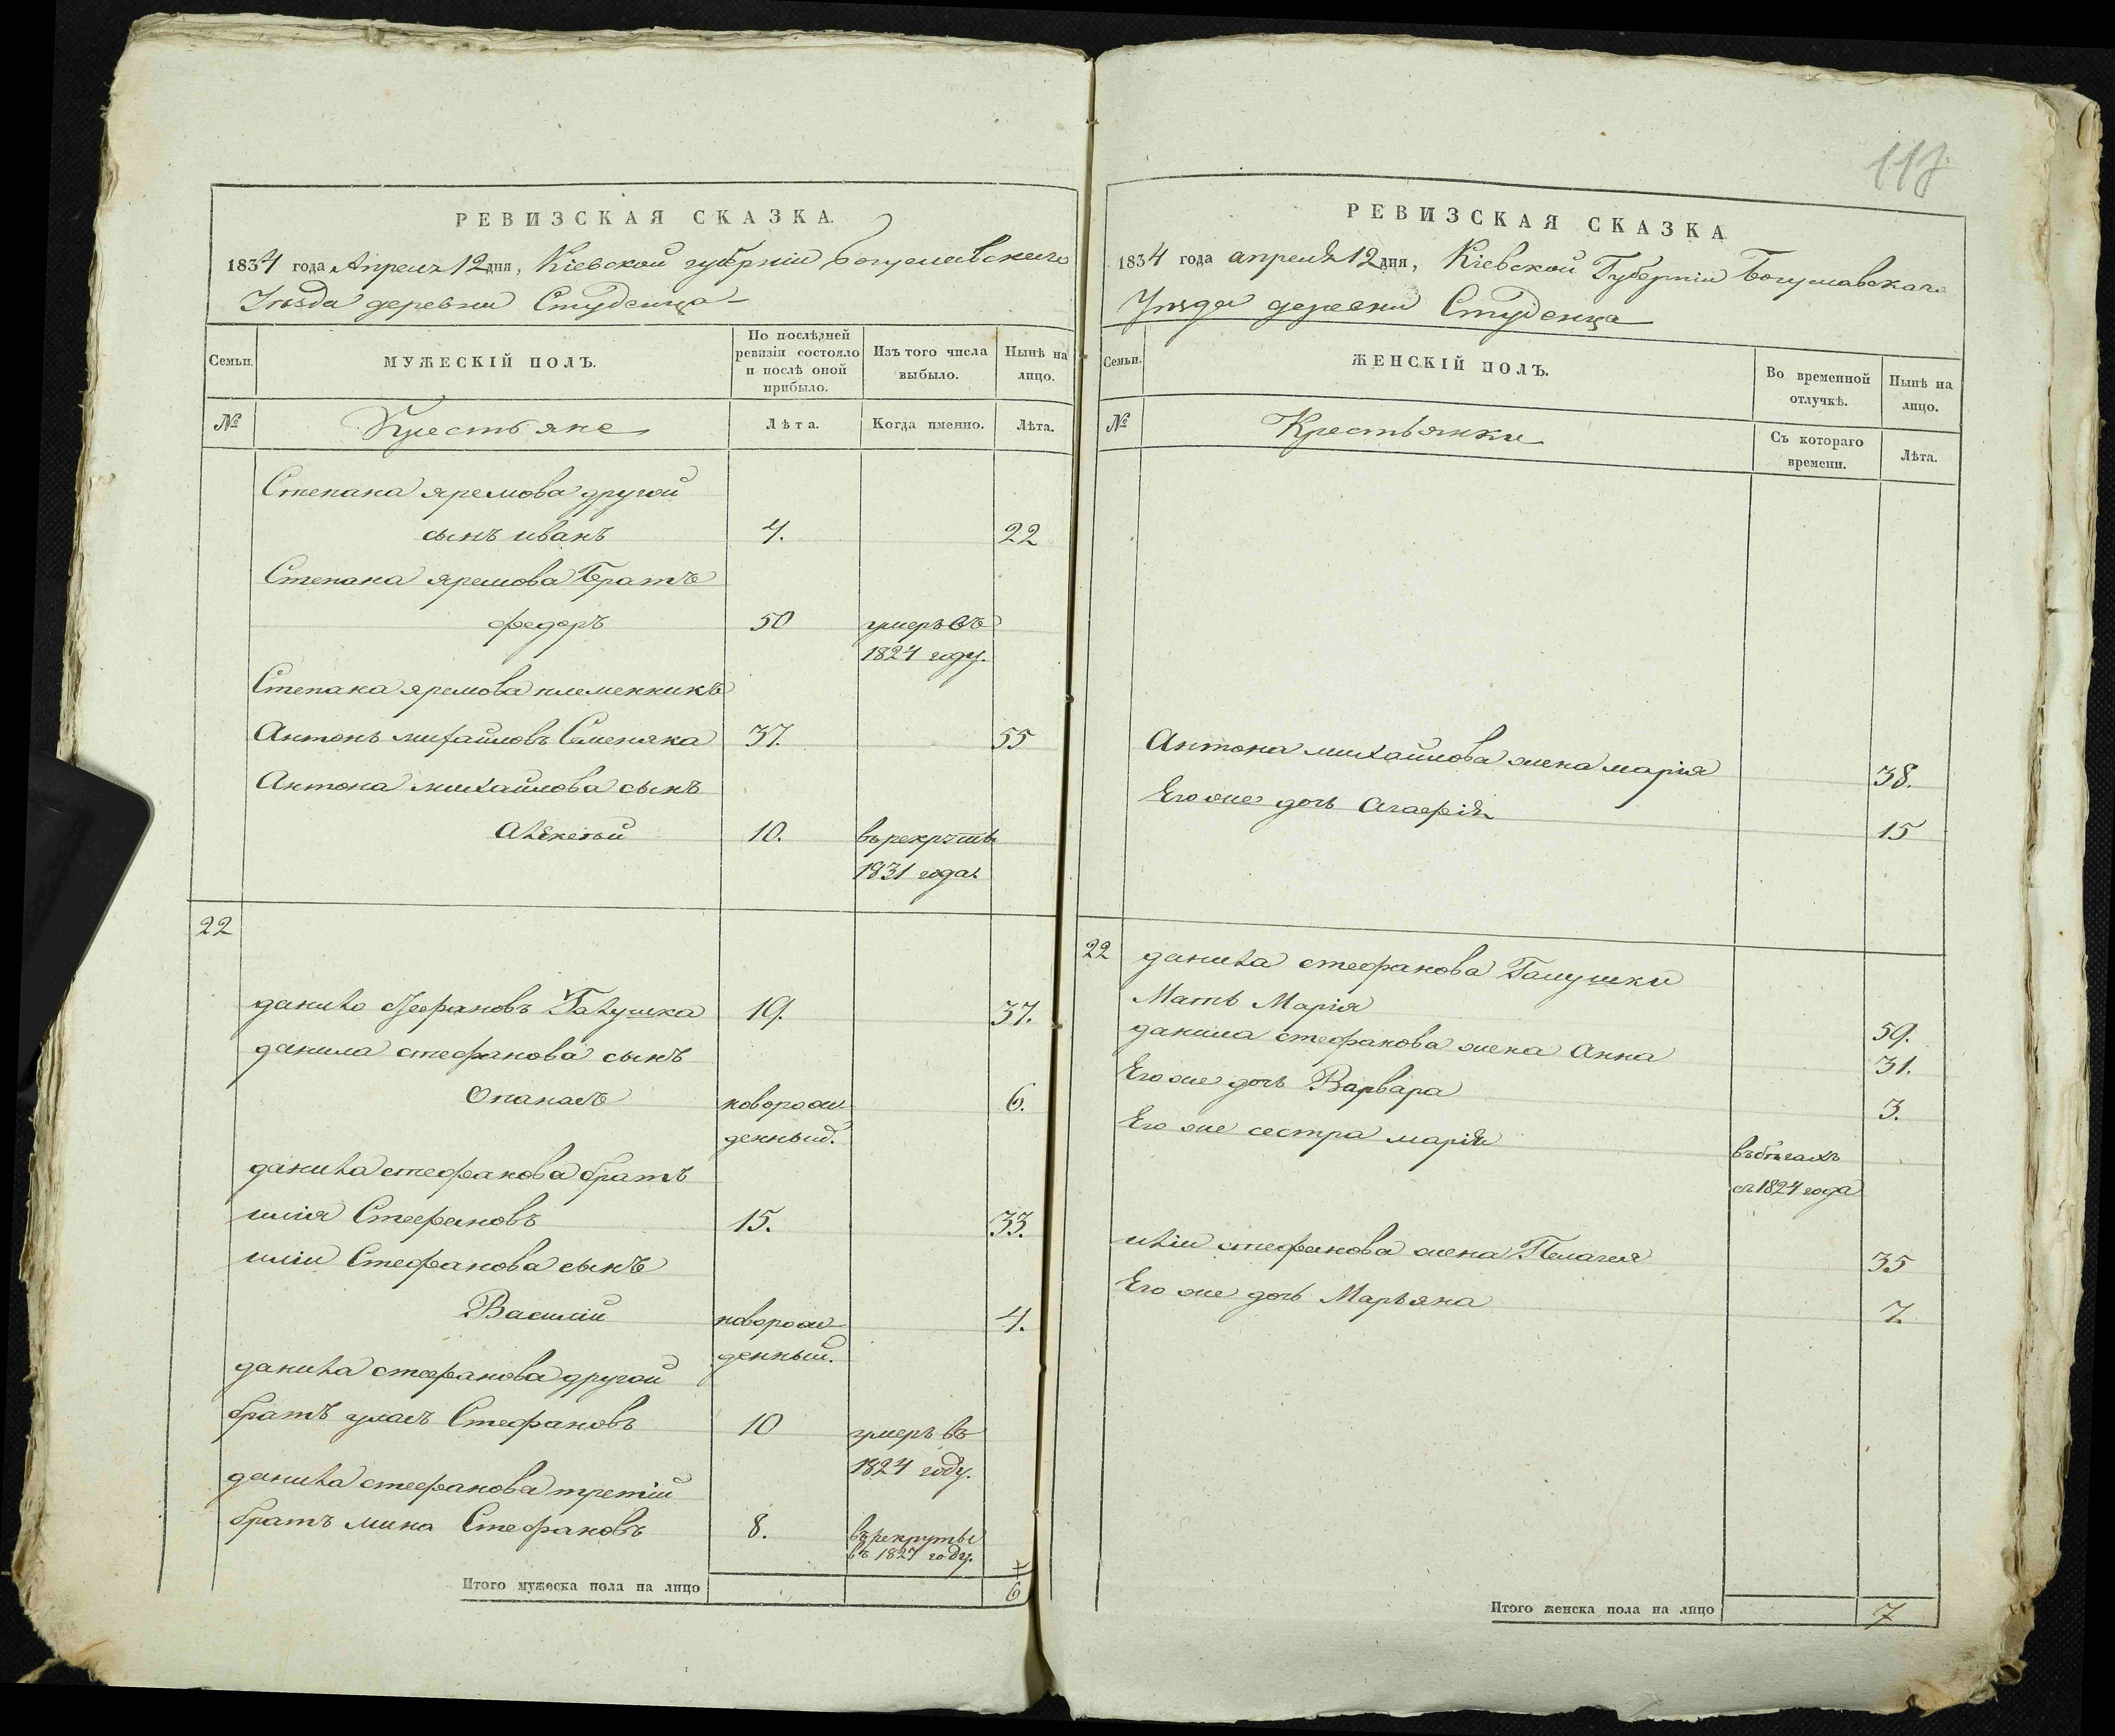 117
РЕВИЗСКАЯ СКАЗКА.
1834 года Апреля 12 дня, Кіевской губерніи Богуславского
Уѣзда деревни Студенца
Семьи.
МУЖЕСКІЙ ПОЛЪ.
По послѣдней ревизіи состояло и послѣ оной прибыло.
Изъ того числа выбыло.
Нынѣ на лицо.
№
Крестьяне
Лѣта.
Когда именно.
Лѣта.
Степана яремова другой
сынъ иванъ 4. 22
Степана яремова Братъ
федоръ 50 умеръ въ
1824 году.
Степана яремова племенникъ
Антонъ михайловъ Семеняка 37. 55
Антона михайлова сынъ
Алексѣй 10. въ рекруты
1831 года
22
данило Стефановъ Галушка 19. 37.
данила стефанова сынъ
Опанасъ новорож 6.
денный.
данила стефанова братъ
илія Стефановъ 15. 33.
иліи Стефанова сынъ
Василій новорож 4.
денный.
данила стефанова другой
братъ уласъ Стефановъ 10 умеръ въ
1824 году.
данила стефанова третій
братъ мина Стефановъ 8. въ рекруты
въ 1827 году.
Итого мужеска пола на лицо 6
РЕВИЗСКАЯ СКАЗКА
1834 года апреля 12 дня, Кіевской Губерніи Богуславскаго
Уѣзда деревни Студенца
Семьи.
ЖЕНСКІЙ ПОЛЪ.
Во временной отлучкѣ.
Нынѣ на лицо.
№
Крестьянки
Съ котораго времени.
Лѣта.
Антона михайлова жена марія 38.
Его же дочь Агафія 15
22 данила стефанова Галушки
Мать Марія 59.
данила стефанова жена Анна 31.
Его же дочь Варвара 3.
Его же сестра марія въ бѣгахъ
съ 1824 года
иліи стефанова жена Пелагея 35
Его же дочь Марьяна 7.
Итого женска пола на лицо 7